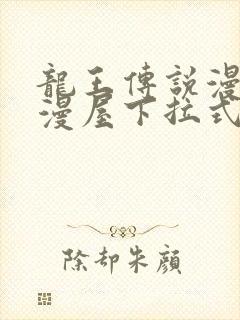 龍王傳說漫
漫屋下拉式
除却朱顔